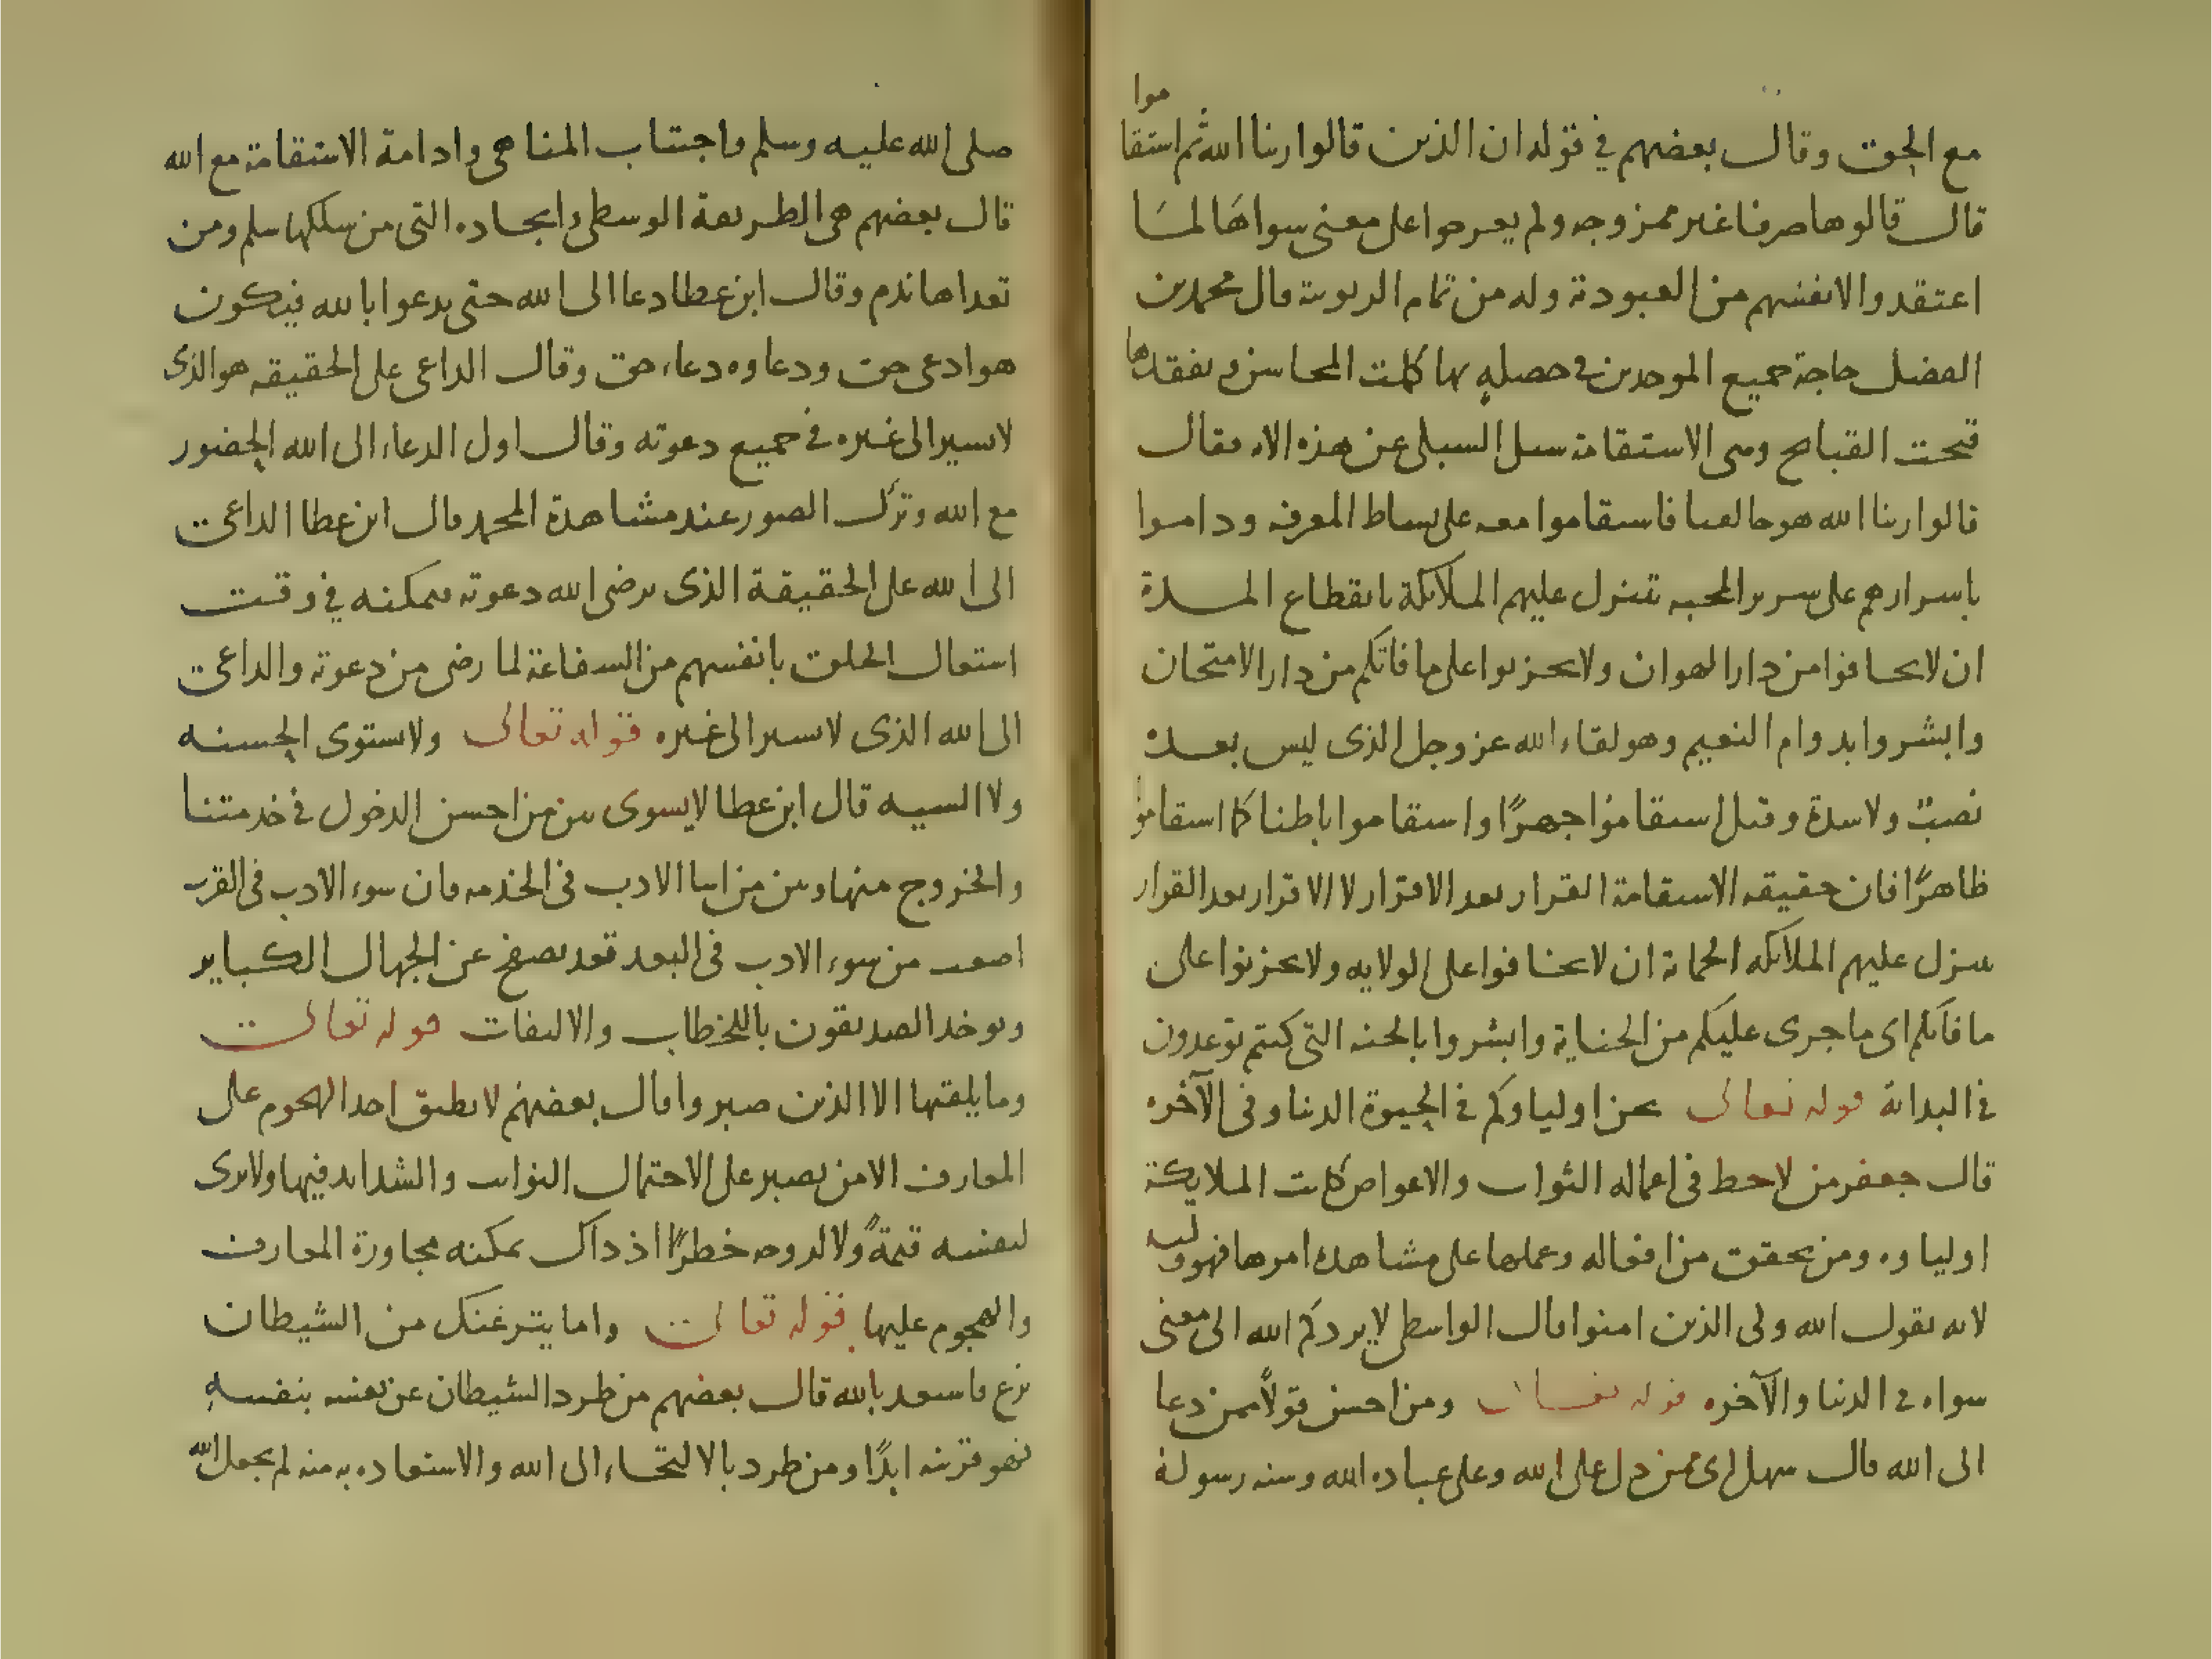 مع الحق وقال بعضهم في قوله ان الذين قالوا ربنا الله ثم استقاموا
قال قالوها صرفا غير ممزوجه ولم يعرجوا على معنى سواها لما
اعتقدوا لانفسهم من العبودية وله من تمام الربوبية قال محمد بن
الفضل حاجة جميع الموحدين في خصلة بها كملت المحاسن وبفقدها
قبحت القبائح وهى الاستقامة سئل الشبلى عن هذه الاية فقال
قالوا ربنا الله هو خالقنا فاستقاموا معه على بساط المعرفة وداموا
باسرارهم على سرير المحبه تتنزل عليهم الملائكة بانقطاع المدة
ان لا تخافوا من دار الهوان ولا تحزنوا على ما فاتكم من دار الامتحان
وابشروا بدوام النعيم وهو لقاء الله عز وجل الذى ليس بعده
نصب ولا شدة وقيل استقاموا جهرًا واستقاموا باطنا كما استقاموا
ظاهرًا فان حقيقه الاستقامة القرار بعد الاقرار لا الاقرار بعد القرار
تتنزل عليهم الملائكه ان لا تخافوا على الولايه ولا تحزنوا على
ما فاتكم اى ما جرى عليكم من الجناية وابشروا بالجنه التى كنتم توعدون
في البداية قوله تعالى نحن اولياوكم في الحيوة الدنيا وفى الآخره
قال جعفر من لاحظ فى اعماله الثواب والاعواض كانت الملايكة
اولياوه ومن تحقق من افعاله وعملها على مشاهدة امرها فهو وليه
لانه يقول الله ولى الذين امنوا قال الواسطى لا يردكم الله الى معنى
سواه في الدنيا والآخره قوله تعالى ومن احسن قولاً ممن دعا
الى الله قال سهل اى ممن دل على الله وعلى عباده الله وسنه رسوله
صلى الله عليه وسلم واجتناب المناهى وادامة الاستقامة مع الله
قال بعضهم هى الطريقة الوسطى والجاده التى من سلكها سلم ومن
تعداها ندم وقال ابن عطا دعا الى الله حتى يدعوا بالله فيكون
هو ادعى حق ودعاوه دعاء حق وقال الداعى على الحقيقه هو الذى
لا يشير الى غيره في جميع دعوته وقال اول الدعاء الى الله الحضور
مع الله وترك الصور عند مشاهدة قال ابن عطا الداعى
الى الله على الحقيقة الذى يرضى الله دعوته فيمكنه في وقت
اشتعال الخلق بانفسهم من الشفاعة لما رضى من دعوته والداعى
الى الله الذى لا يشير الى غيره قوله تعالى ولا تستوى الحسنه
ولا السيه قال ابن عطا لا يستوى بين من احسن الدخول في خدمتنا
والخروج منها وبين من اسا الادب فى الخدمه فان سوء الادب فى القرب
اصعب من سوء الادب فى البعد فقد يصفح عن الجهال الكباير
ويوخذ الصديقون باللخطاب والالتفات قوله تعالى
وما يلقيها الا الذين صبروا قال بعضهم لا يطيق احد الهجوم على
المعارف الا من يصبر على الاحتمال النوايب والشدايد فيها ولا يرى
لنفسه قيمةً ولا لروحه خطرًا اذ ذاك يمكنه مجاورة المعارف
والهجوم عليها قوله تعالى واما ينزغنك من الشيطان
نزغ فاستعذ بالله قال بعضهم من طرد الشيطان عن نفسه بنفسه
فهو قرينه ابدًا ومن طرد بالالتجاء الى الله والاستعاده به منه لم يجعل الله